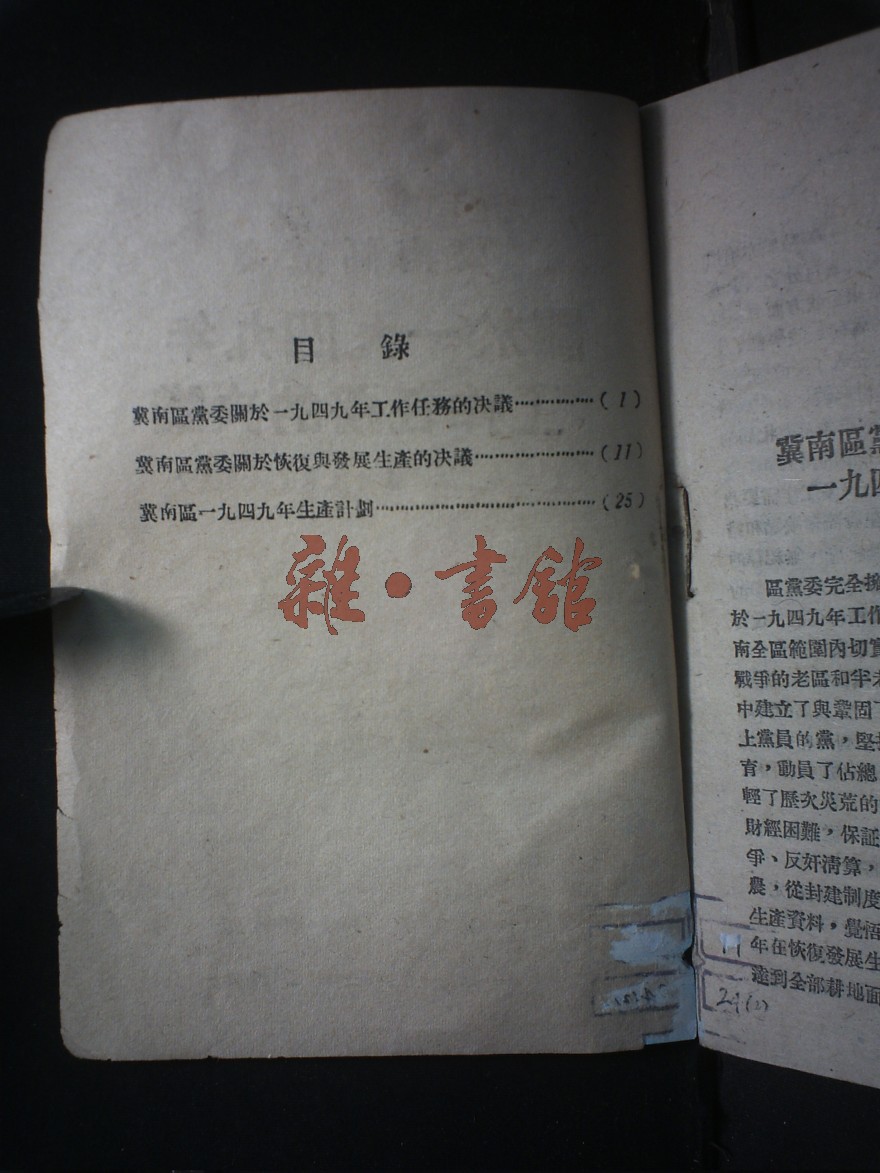 目 錄
冀南區黨委關於一九四九年工作任務的决議……………(1)
冀南區黨委關於恢復與發展生產的决議………………(11)
冀南區一九四九年生產計劃………………………………(25)
雜·書館
冀南區黨
一九四
區黨委完全擁
於一九四九年工作
南全區範圍內切實
戰爭的老區和半老
中建立了與鞏固了
上黨員的黨，堅
育，動員了佔總
輕了歷次災荒的
財經困難，保証
爭、反奸淸算，
農，從封建制度
生產資料，覺悟
年在恢復發展生
達到全部耕地面
24(2)